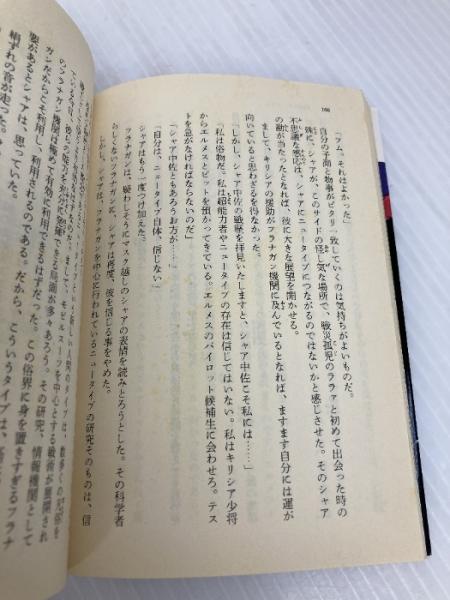 168
「ウム、それはよかった」
自分の予測と物事がピタリ一致していくのは気持ちがよいものだ。
殊に、シャアが、このサイドの怪し気な場所で、戦災孤児のララァと初めて出会った時の
不思議な感応は、シャアにニュータイプにつながるのではないかと感じさせた。そのシャア
の勘が当たったとなれば、彼に大きな展望を開かせる。
まして、キリシアの援助がフラナガン機関に及んでいるとなれば、ますます自分には運が
向いていると思わざるを得なかった。
「しかし、シャア中佐の戦歴を拝見いたしますと、シャア中佐こそ私には……」
「私は俗物だ。私は超能力者やニュータイプの存在は信じてはいない。私はキリシア少将
からエルメスとビットを預かってきている。エルメスのパイロット候補生に会わせろ。テス
トを急がなければならないのだ」
「シャア中佐ともあろう方が……」
「自分は、ニュータイプ自体、信じない」
シャアはもう一度つけ加えた。
フラナガンは、疑わしそうにマスク越しのシャアの表情を読みとろうとした。その科学者
らしくないフラナガンに、シャアは再度、彼を信じる事をやめた。
しかし、シャアは、フラナガンを中心に行われているニュータイプの研究そのものは、信
タイプは、数多くの
まして、モビルスーツを中心とする戦術が展開され
局面が多々あろう。その研究、情報機関として
のフラナガン機関は極めて有効に利用できるはずだった。この俗界に身を置きすぎるフラナ
ガンだからこそ利用し、利用されるのである。だから、こういうタイプは、
要があるとシャアは、思っていた。
絹ずれの音が走った。